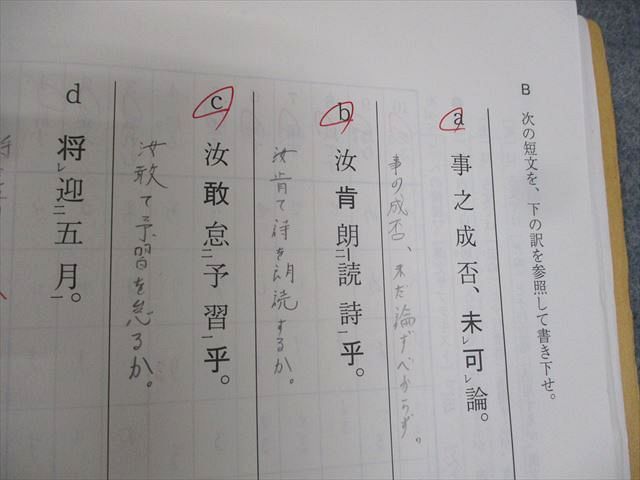 B 次の短文を、下の訳を参照して書き下せ。
a 事之成否、未レ可レ論。
事の成否、未だ論ずべからず。
b 汝肯朗‐読二詩一乎。
汝肯て詩を朗読するか。
c 汝敢怠二予習一乎。
汝敢て予習を怠るか。
d 将レ迎二五月一。